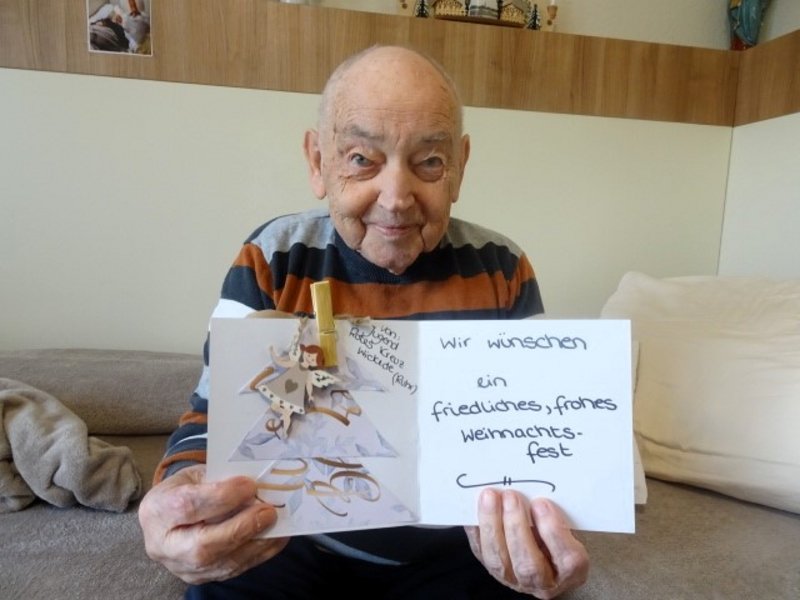 von:
Jugend
Rotes Kreuz
Wickede (Ruhr)
Wir wünschen
ein
friedliches, frohes
Weihnachts-
fest